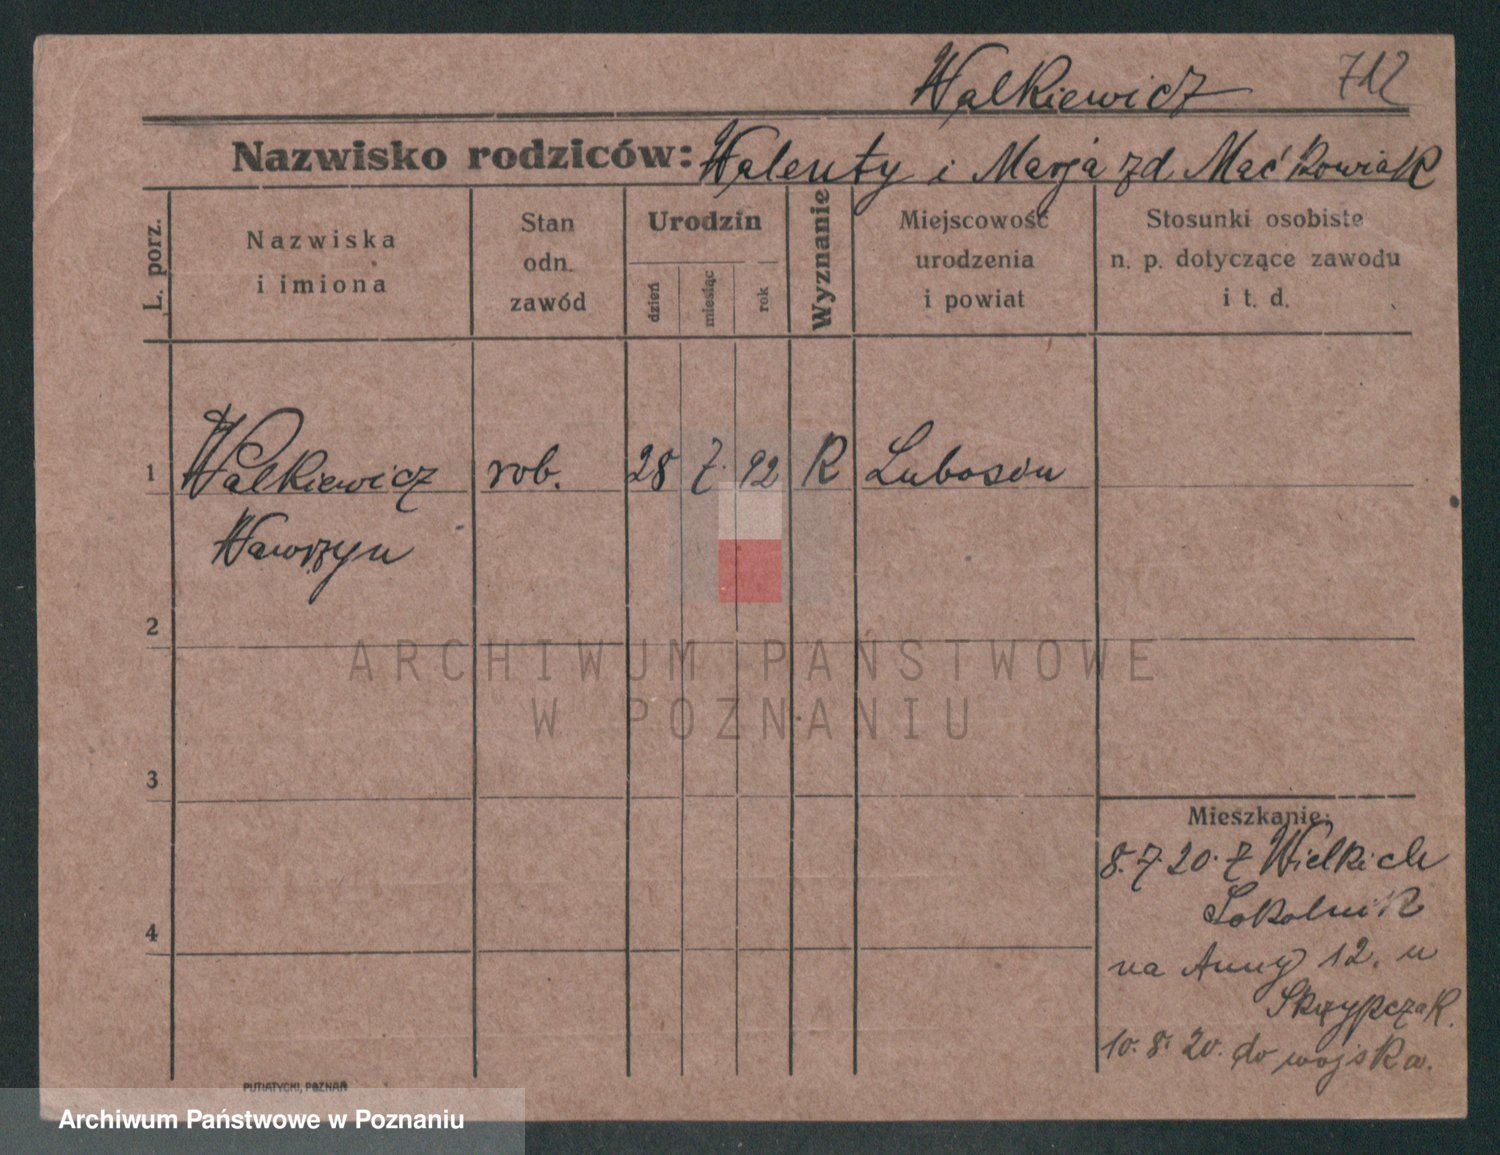 Walkiewicz 712
Nazwisko rodziców: Walenty i Marja zd Maćkowiak
L. porz.
Nazwiska
i imiona
Stan
odn.
zawód
Urodzin
dzień
miesiąc
rok
Wyznanie
Miejscowość
urodzenia
i powiat
Stosunki osobiste
n. p. dotyczące zawodu
i t. d.
1 Walkiewicz rob. 28 7. 92 R Lubosin
Wawrzyn
2
ARCHIWUM PAŃSTWOWE
W POZNANIU
3
Mieszkanie:
8. 7 20. z Wielkich
Sokolnik
4
na Anny 12. u
Skrzypczak.
10. 8. 20. do wojska.
PUTIATYCKI, POZNAŃ
Archiwum Państwowe w Poznaniu